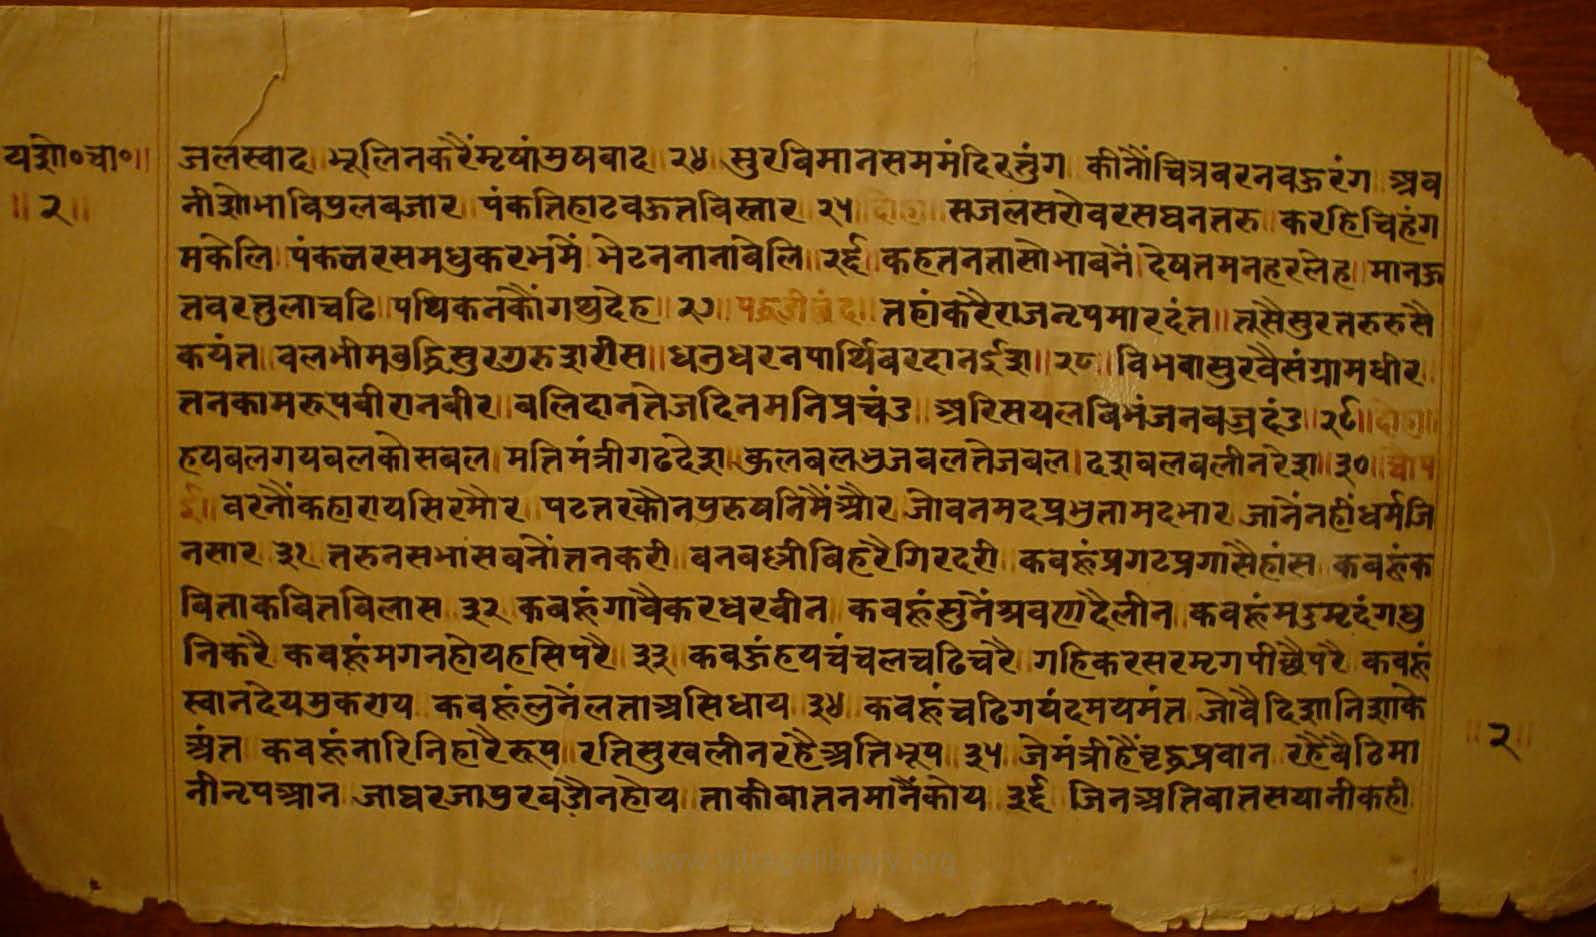 यशो०चा०॥
॥२॥
जलस्वाद॥ भूलिनकरैंमृषांमुषबाद॥२४॥ सुरबिमानसममंदिरतुंग॥ कीनौंचित्रबरनबऊरंग॥ अव
नीशोभाविपुलबजार॥ पंकतिहाटबऊतबिस्तार॥२५॥ दोहा॥ सजलसरोवरसघनतरु॥ करहिचिहंग
मकेलि॥ पंकजरसमधुकरभमें॥ भेटननानाबेलि॥२६॥ कहतनतासोभाबनें॥ देषतमनहरलेह॥ मानऊ
तवरतुलाचढि॥ पथिकनकौंगथुदेह॥२७॥ पद्धडीछंद॥ तहांकरैराजनृपमारदंत॥ तूसैसुरतरुरुसै
कयंत॥ बलभीमबुद्धिसुरगुरुशरीस॥ धनुधरनपार्थिबरदानईश॥२८॥ विभवासुरवैसंग्रामधीर॥
तनकामरूपबीरानबीर॥ बलिदानतेजदिनमनिप्रचंड॥ अरिसयलबिभंजनबज्रदंड॥२९॥ दोहा॥
हयबलगयबलकोसबल॥ मतिमंत्रीगढदेश॥ कुलबलभुजबलतेजबल॥ दशबलबलीनरेश॥३०॥ चौप
ई॥ बरनौंकहारायसिरमौर॥ पटतरकौनपुरुषनिमैंऔर॥ जोबनमदप्रभुतामदभार॥ जानेंनहींधर्मजि
नसार॥३१॥ तरुनसभासबनौंतनकरी॥ बनबश्रीविहरैगिरदरी॥ कबहूंप्रगटप्रगासैहांस॥ कबहूंक
बिताकबितबिलास॥३२॥ कबहूंगावैकरधरबीन॥ कबहूंसुनेंश्रवणदैलीन॥ कबहूंमडमृदंगधु
निकरै॥ कबहूंमगनहोयहसिपरै॥३३॥ कबऊंहयचंचलचढिचरै॥ गहिकरसरमृगपीछैपरै॥ कबहूं
स्वानदेयमुकराय॥ कबहूंलुनेंलताअसिधाय॥३४॥ कबहूंचढिगयंदमयमंत॥ जोवैदिशानिशाके
अंत॥ कबहूंनारिनिहारैरूप॥ रतिसुखलीनरहैअतिभूप॥३५॥ जेमंत्रीहैंवृद्धप्रवान॥ रहैंबैठिमा
नीनृपआन॥ जाघरजापुरबडौनहोय॥ ताकीबातनमानैंकोय॥३६॥ जिनअतिबातसयानीकही
॥२॥
www.vitragelibrary.org